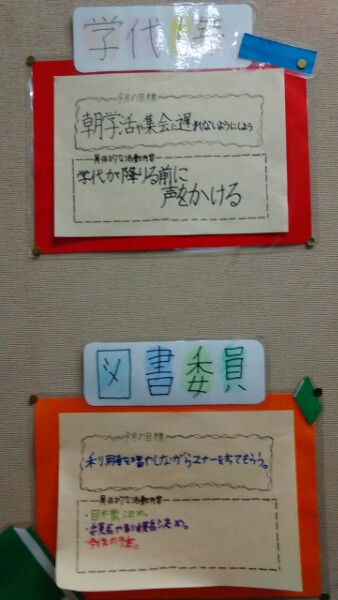 学代
今月の目標
朝学活や集会に遅れないようにしよう
具体的な活動内容
学代が降りる前に
声をかける
図書委員
今月の目標
利用者を増やしながらマナーを守ってもらう。
具体的な活動内容
今後の予定。